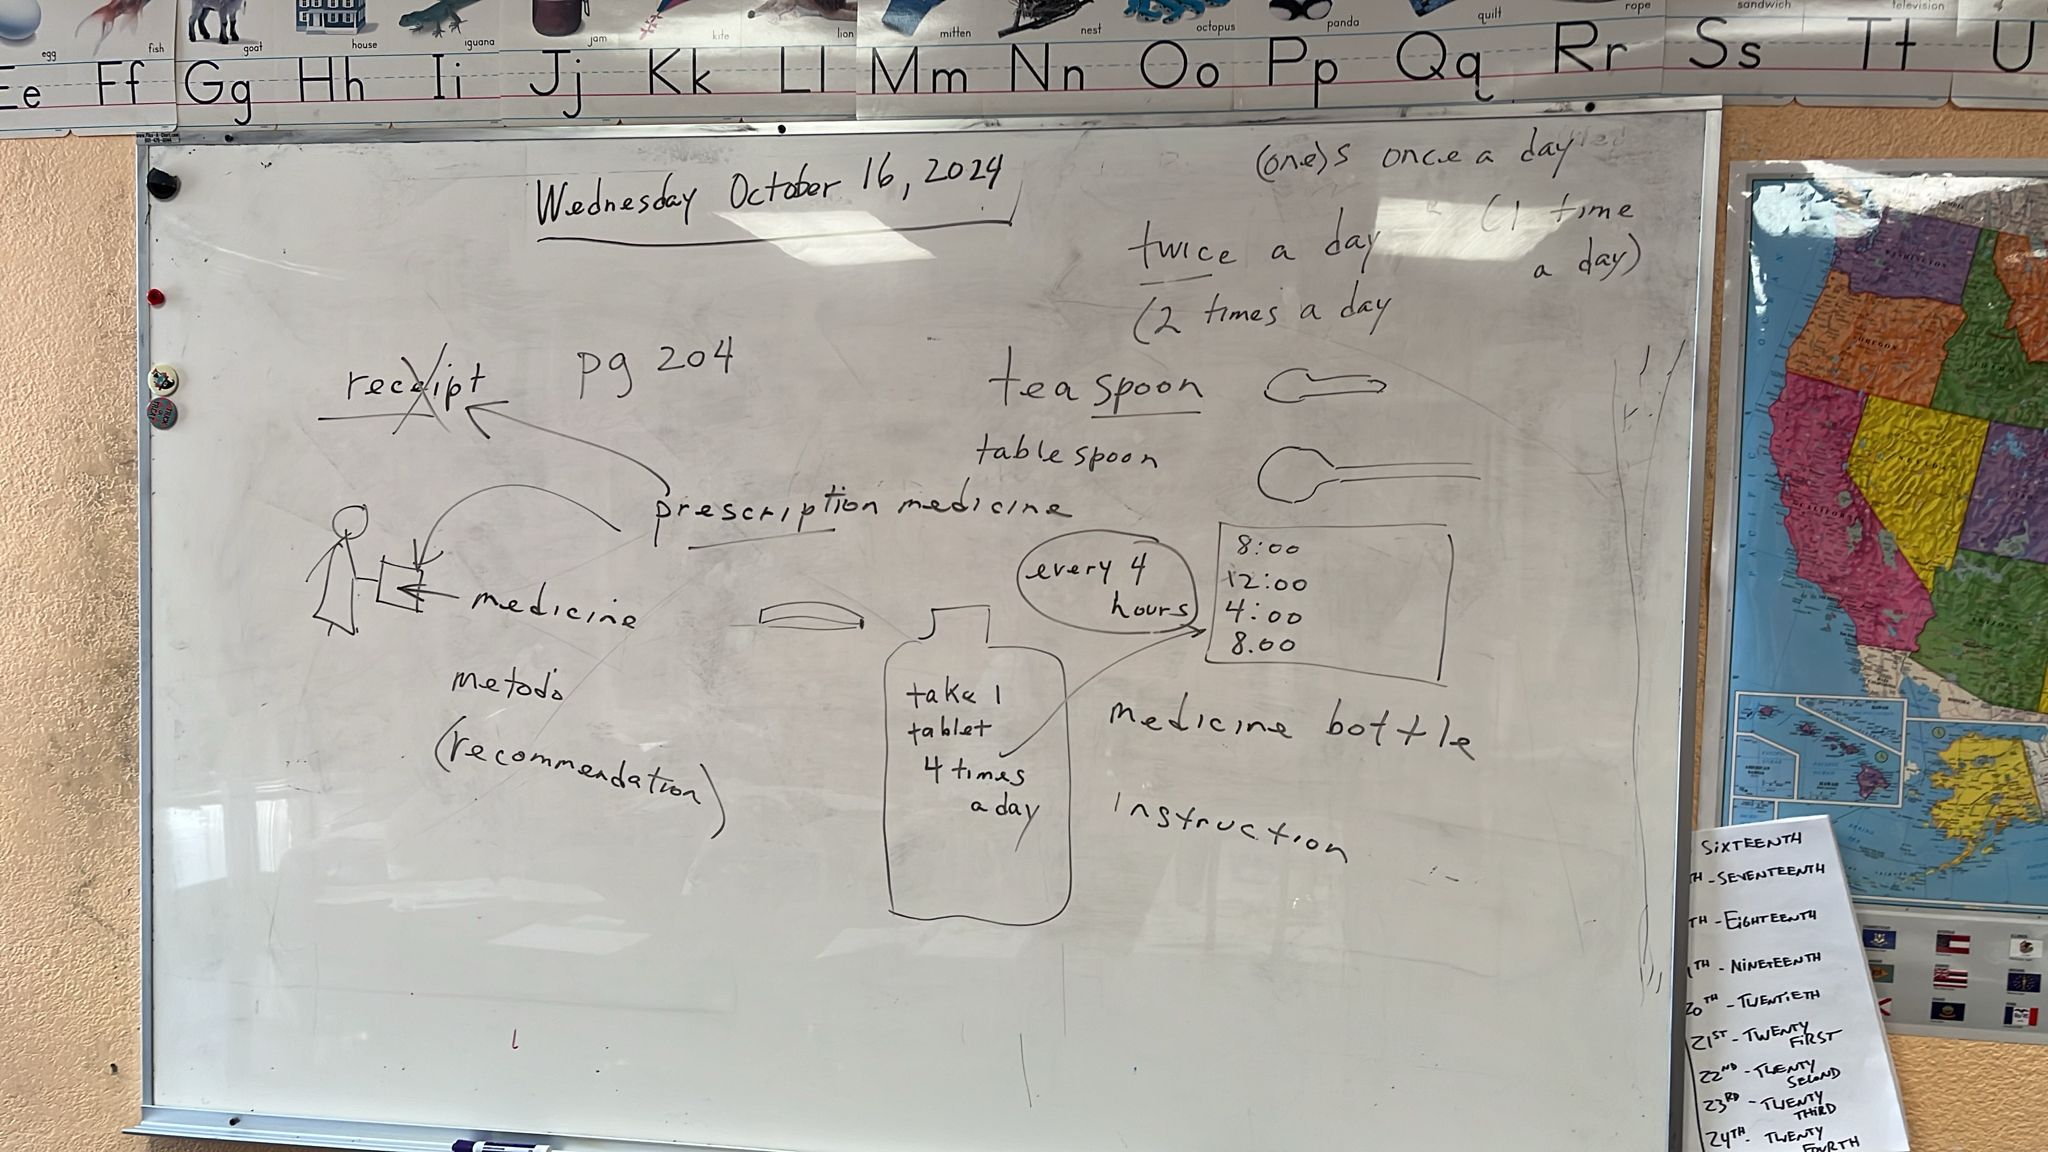 egg
fish
goat
house
iguana
jam
kite
lion
mitten
nest
octopus
panda
quilt
rope
sandwich
television
Ee Ff Gg Hh Ii Jj Kk Ll Mm Nn Oo Pp Qq Rr Ss Tt U
Wednesday October 16, 2024
(one)s once a day
(1 time
a day)
twice a day
(2 times a day
receipt
pg 204
teaspoon
tablespoon
prescription medicine
medicine
metodo
(recommendation)
every 4
hours
8:00
12:00
4:00
8.00
take 1
tablet
4 times
a day
medicine bottle
instruction
WASHINGTON
OREGON
IDAHO
CALIFORNIA
ARIZONA
SIXTEENTH
TH - SEVENTEENTH
TH - EIGHTEENTH
TH - NINETEENTH
20TH - TWENTIETH
21ST - TWENTY
FIRST
22ND - TWENTY
SECOND
23RD - TWENTY
THIRD
24TH - TWENTY
FOURTH